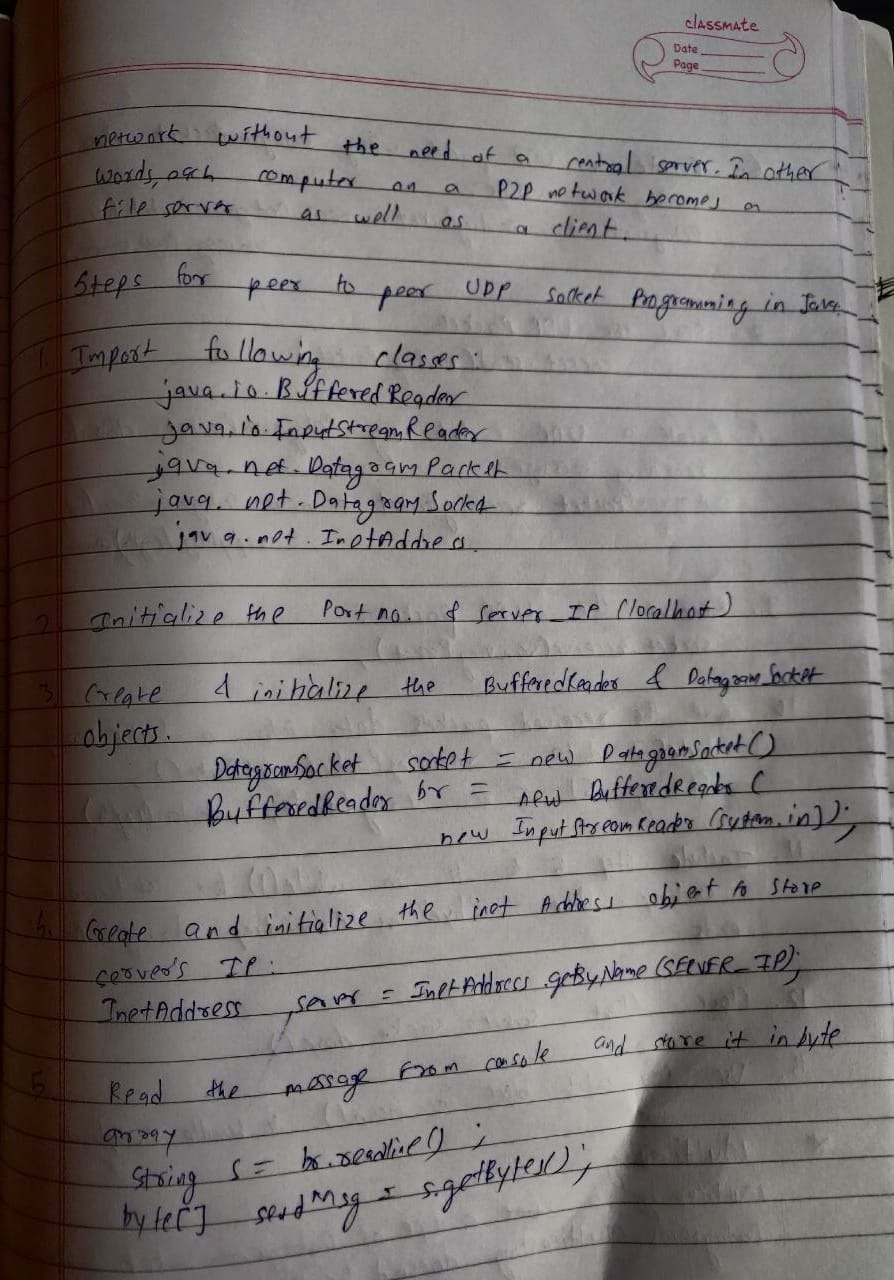 classmate
Date
Page
network without the need of a central server. In other
words, each computer on a P2P network becomes a
file server as well as a client.
Steps for peer to peer UDP Socket Programming in Java
1. Import following classes:
java.io.BufferedReader
java.io.InputStreamReader
java.net.DatagramPacket
java.net.DatagramSocket
java.net.InetAddress
2. Initialize the Port no. & Server_IP (localhost)
3. Create & initialize the BufferedReader & DatagramSocket
objects.
DatagramSocket socket = new DatagramSocket()
BufferedReader br = new BufferedReader (
new InputStreamReader (System.in));
4. Create and initialize the inet Address object to store
server's IP:
InetAddress server = InetAddress.getByName(SERVER_IP);
5. Read the message from console and store it in byte
array
String s = br.readline();
byte[] sendMsg = s.getBytes();